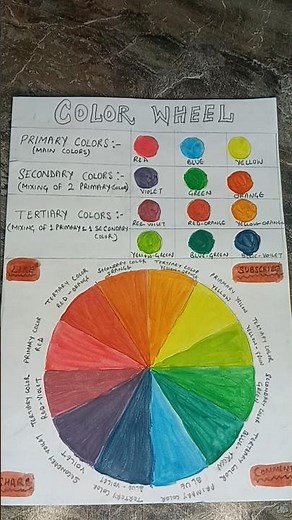 COLOR WHEEL
PRIMARY COLORS:-
(MAIN COLORS)
RED BLUE YELLOW
SECONDARY COLORS:-
(MIXING OF 2 PRIMARY COLOR)
VIOLET GREEN ORANGE
TERTIARY COLORS:-
(MIXING OF 1 PRIMARY & 1 SECONDARY
COLOR)
RED-VIOLET RED-ORANGE YELLOW-ORANGE
YELLOW-GREEN BLUE-GREEN BLUE-VIOLET
LIKE
SUBSCRIBE
SECONDARY COLOR
ORANGE
TERTIARY COLOR
YELLOW
PRIMARY
YELLOW
TERTIARY
YELLOW
SECONDARY COLOR
GREEN
TERTIARY COLOR
BLUE
PRIMARY COLOR
BLUE
TERTIARY COLOR
BLUE-VIOLET
SECONDARY
VIOLET
TERTIARY COLOR
RED-VIOLET
PRIMARY COLOR
RED
TERTIARY COLOR
RED-ORANGE
SHARE
COMMENT